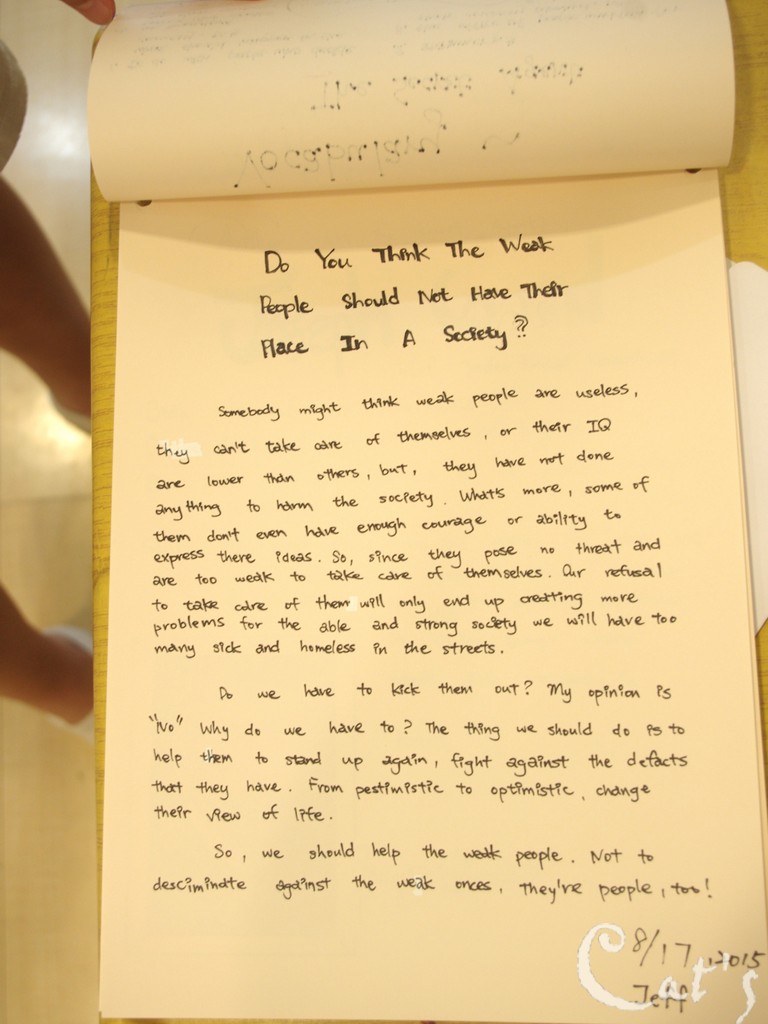 Vocabulary
Do You Think The Weak
People Should Not Have Their
Place In A Society?
Somebody might think weak people are useless,
they can't take care of themselves, or their IQ
are lower than others, but, they have not done
anything to harm the society. What's more, some of
them don't even have enough courage or ability to
express there ideas. So, since they pose no threat and
are too weak to take care of themselves. Our refusal
to take care of them will only end up creating more
problems for the able and strong society we will have too
many sick and homeless in the streets.
Do we have to kick them out? My opinion is
"No" Why do we have to? The thing we should do is to
help them to stand up again, fight against the defacts
that they have. From pestimistic to optimistic, change
their view of life.
So, we should help the weak people. Not to
desciminate against the weak onces, They're people, too!
8/17, 2015
Jeff
Cat's